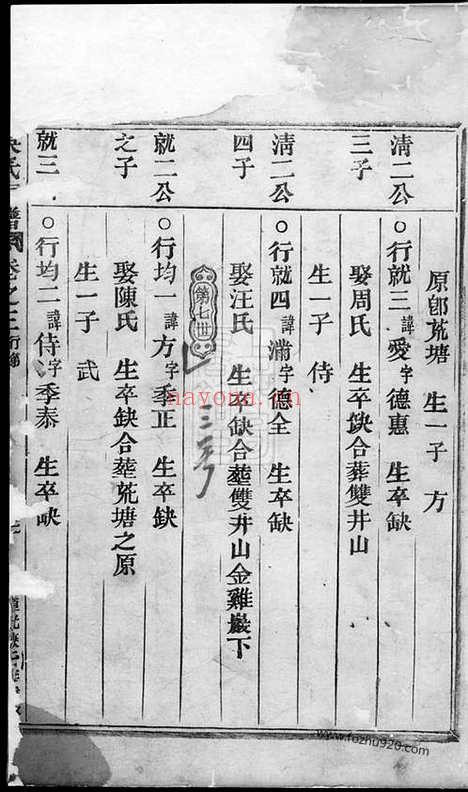 原卽荒塘 生一子 方
清二公 ○行就三諱愛字德惠 生卒缺
三子 娶周氏 生卒缺合葬雙井山
生一子 侍
清二公 ○行就四諱滿字德全 生卒缺
四子 娶汪氏 生卒缺合塟雙井山金雞巖下
第七世
就二公 ○行均一諱方字季正 生卒缺
之子 娶陳氏 生卒缺合塟荒塘之原
生一子 武
就三 ○行均二諱侍字季泰 生卒缺
nayona.cn
www.fozhu920.com